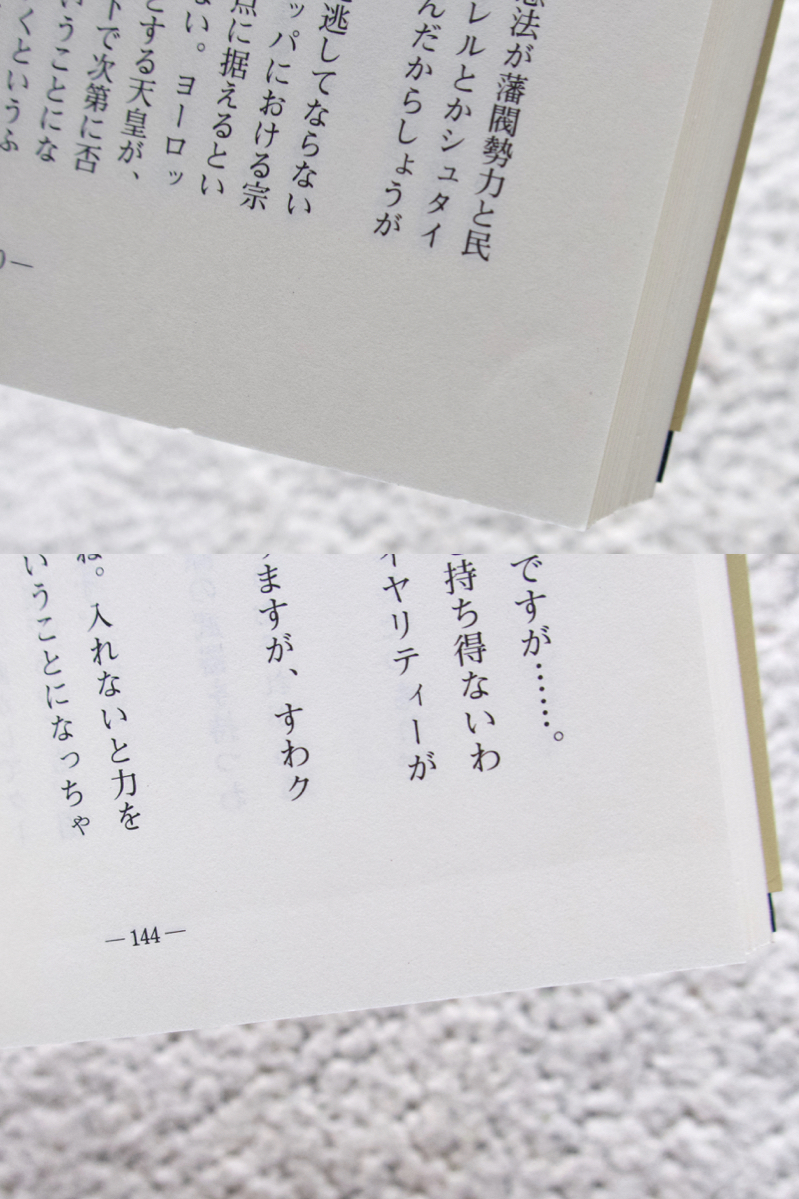 憲法が藩閥勢力と民
レルとかシュタイ
んだからしょうが
逃してならない
ッパにおける宗
点に据えるとい
ない。ヨーロッ
とする天皇が、
下で次第に否
うことにな
くというふ
ですが……。
持ち得ないわ
イヤリティーが
ますが、すわク
ね。入れないと力を
いうことになっちゃ
—144—